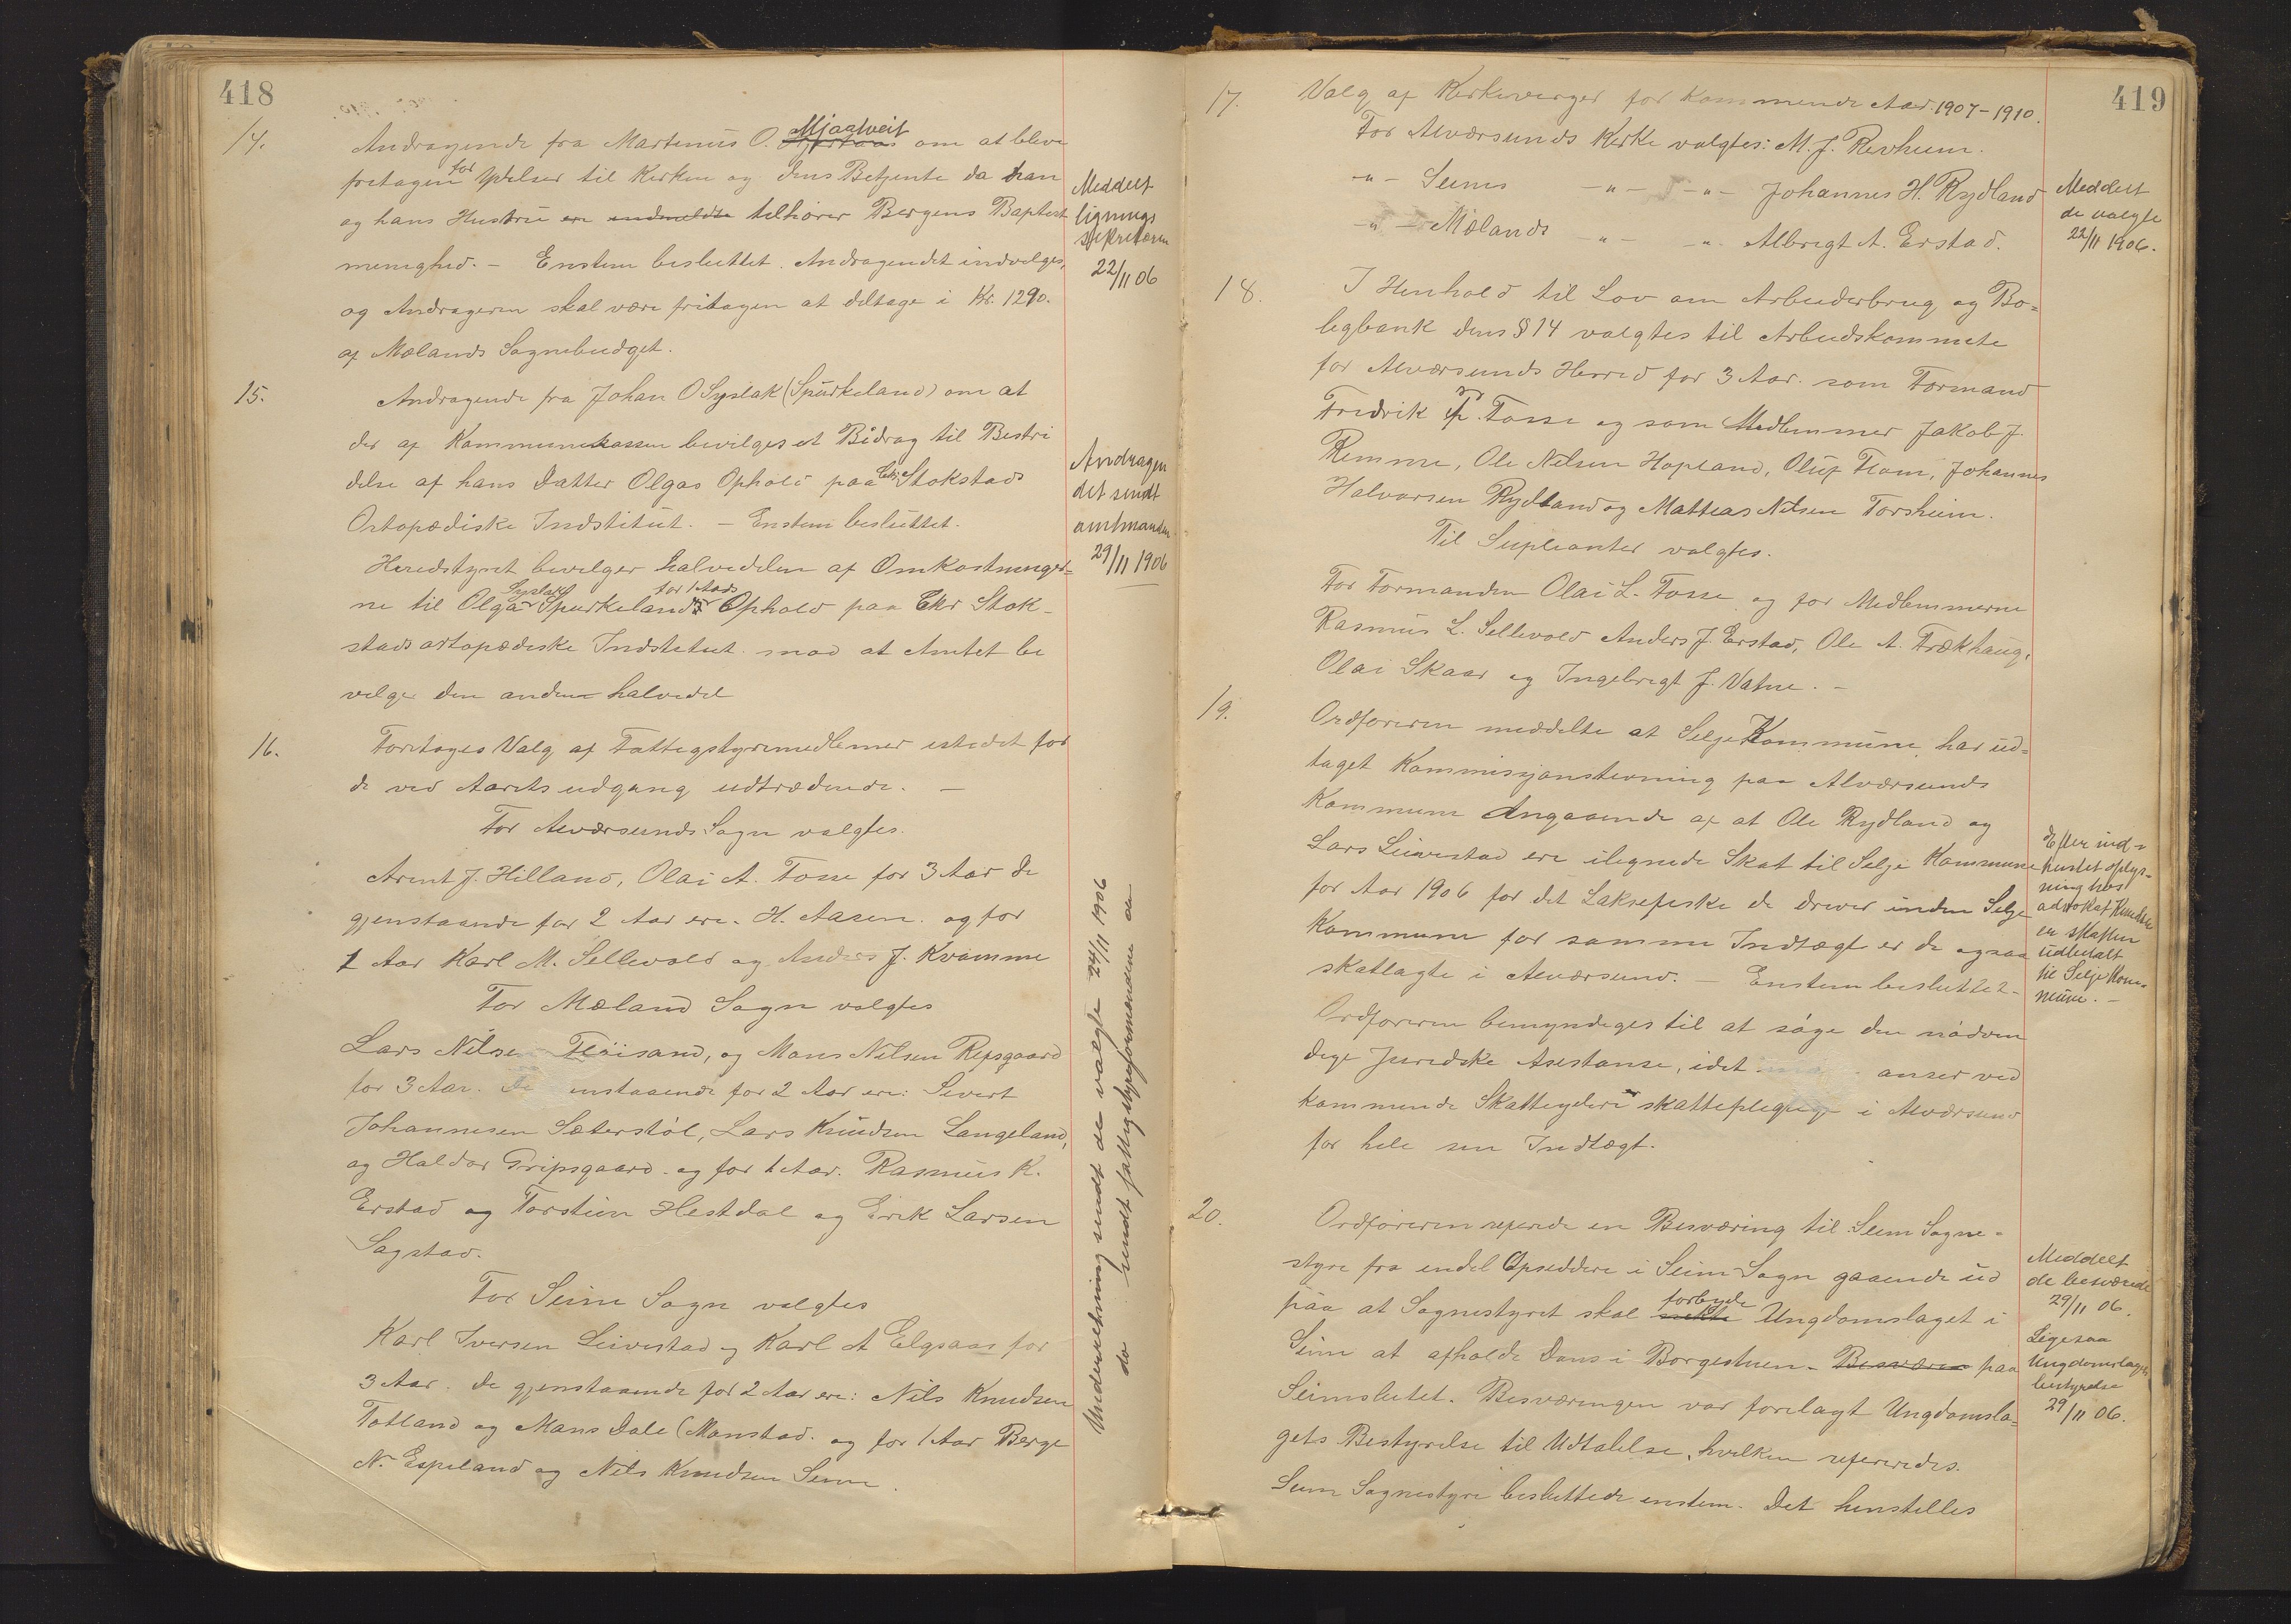 418
14. Andragende fra Martinus O. Mjaatveit om at bleve
fretagen for Ydelser til Kirken og dens Betjente da han
og hans Hustru ere indmeldte tilhører Bergens Baptist
menighed. - Enstem besluttet. Andragendet indvilges,
og Andrageren skal være fritagen at deltage i Kr. 1290.
af Mælands Sognebudget.
Meddelt
lignings
sekretæren
22/11 06
15. Andragende fra Johan O Syslak (Spurkeland) om at
der af Kommunekassen bevilges et Bidrag til Bestri
delse af hans Datter Olgas Ophold paa Chr. Stokstads
Ortopædiske Indstitut. - Enstem besluttet.
Heredstyret bevilger halvedelen af Omkostninger=
ne til Olga Syslak Spurkelands for 1 Aads Ophold paa Chr Stok-
stads ortopædiske Indstitut. mod at Amtet be
velger den anden halvedel
Andragen
det sendt
amtmanden
29/11 1906
16. Foretoges Valg af Fattigstyremedlemer istedet for
de ved Aarets udgang udtrædende. -
For Alversunds Sogn valgtes.
Arent J. Hilland, Olai A. Fosse for 3 Aar de
gjenstaaende for 2 Aar ere. H. Aasen. og for
1 Aar Karl M. Sellevold og Anders J. Kvamme
For Mæland Sogn valgtes
Lars Nilsen Fløisand, og Mons Nilsen Repsgaard
for 3 Aar. De enstaaende for 2 Aar ere: Sivert
Johannesen Sæterstøl, Lars Knudsen Langeland,
og Haldor Gripsgaard. og for 1 Aar. Rasmus K.
Erstad og Torstein Hestdal og Erik Larsen
Sagstad.
For Seim Sogn valgtes
Karl Iversen Leivestad og Karl A Elgsaas for
3 Aar. de gjenstaaende for 2 Aar ere: Nils Knudsen
Totland og Mons Dale (Monstad. og for 1 Aar Berge
N. Espeland og Nils Knudsen Seim.
Underretning sendt de valgte 24/11 1906
do sendt fattigstyreformændene do
419
17. Valg af Kirkeverger for kommende Aar 1907-1910.
For Alværsunds Kirke valgtes: M. J. Revheim.
-"- Seims -"- -"- Johannes H. Rydland
-"- Mælands -"- -"- Albregt A. Erstad.
Meddelt
de valgte
22/11 1906.
18. I Henhold til Lov om Arbeiderbrug og Bo=
ligbank dens § 14 valgtes til Arbeidskommete
for Alværsunds Herred for 3 Aar. som Formand
Fredrik P. Fosse og som Medlemmer Jakob J.
Remme, Ole Nilsen Hopland, Oluf Flom, Johannes
Halvorsen Rydland og Mattias Nilsen Forsheim.
Til Supleanter valgtes.
For Formanden Olai L. Fosse og for Medlemmerne
Rasmus L. Sellevold Anders J. Erstad, Ole A. Trækhaug,
Olai Skaar og Ingebregt J. Vatne. -
19. Ordføreren meddelte at Selje Kommune har ud=
taget Kommisjonstevning paa Alværsunds
Kommune Angaaende af at Ole Rydland og
Lars Leivestad ere ilignede Skat til Selje Kommune
for Aar 1906 for det Laksefiske de drever inden Selje
Kommune for samme Indtægt er de ogsaa
skatlagte i Alværsund. - Enstem besluttet -
Ordføreren bemyndiges til at søge den nødven
dige Juredske Asestanse, idet anser ved
kommende Skatteydere skattepligtige i Alværsund
for hele sin Indtægt.
Efter ind=
hentet oplys=
ning hos
advokat Knudsen
er skatten
udbetalt
til Selje Kom=
mune. -
20. Ordføreren referede en Besværing til Seim Sogne=
styre fra endel Opseddere i Seim Sogn gaaende ud
paa at Sognestyret skal nekte forbyde Ungdomslaget i
Seim at afholde Dans i Borgestuen. Besværen paa
Seimsletet. Besværingen var forelagt Ungdomsla=
gets Bestyrelse til Udtalelse, hvilken refereredes.
Seim Sognestyre besluttede enstem. Det henstilles
Meddelt
de besværede
29/11 06.
Ligesaa
Ungdomslagets
bestyrelse
29/11 06.